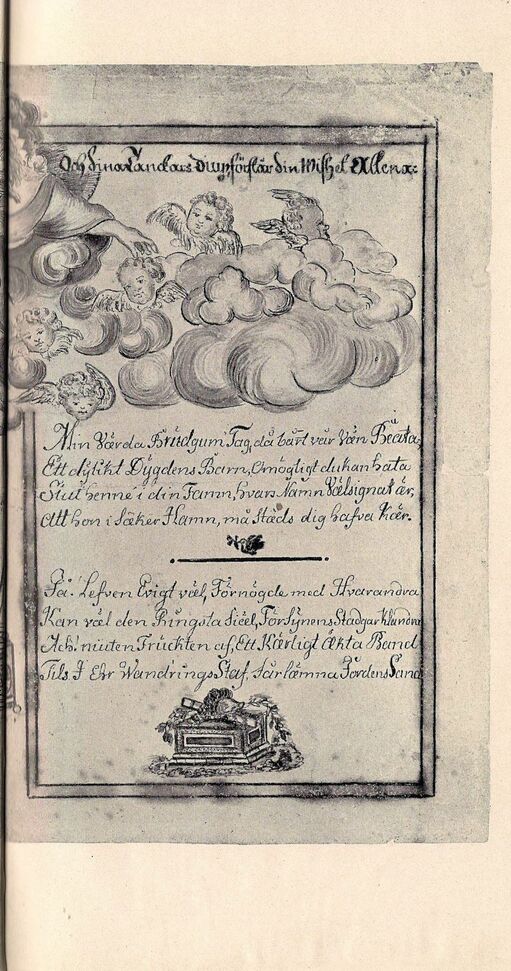 Och dina Tanckars Diup förstår din Wishet Allena:
Min Värda Brudgum Tag, då bårt vår Vän Beata,
Ett dylikt Dygdens Barn, Omögligt du kan hata
Slut henne i din Famn, hvars Namn Välsignat är,
Att hon i Säker Hamn, må städs dig hafva Kär.
Så! Lefven Evigt väl, Förnögde med Hvarandra
Kan väl den Ringsta Siäl, Försynens Stadgar klandra
Ach! niuten Fruckten af, Ett Kärligt äkta Band
Tils I Edr Wandrings Staf, får lämna Jordens Sand